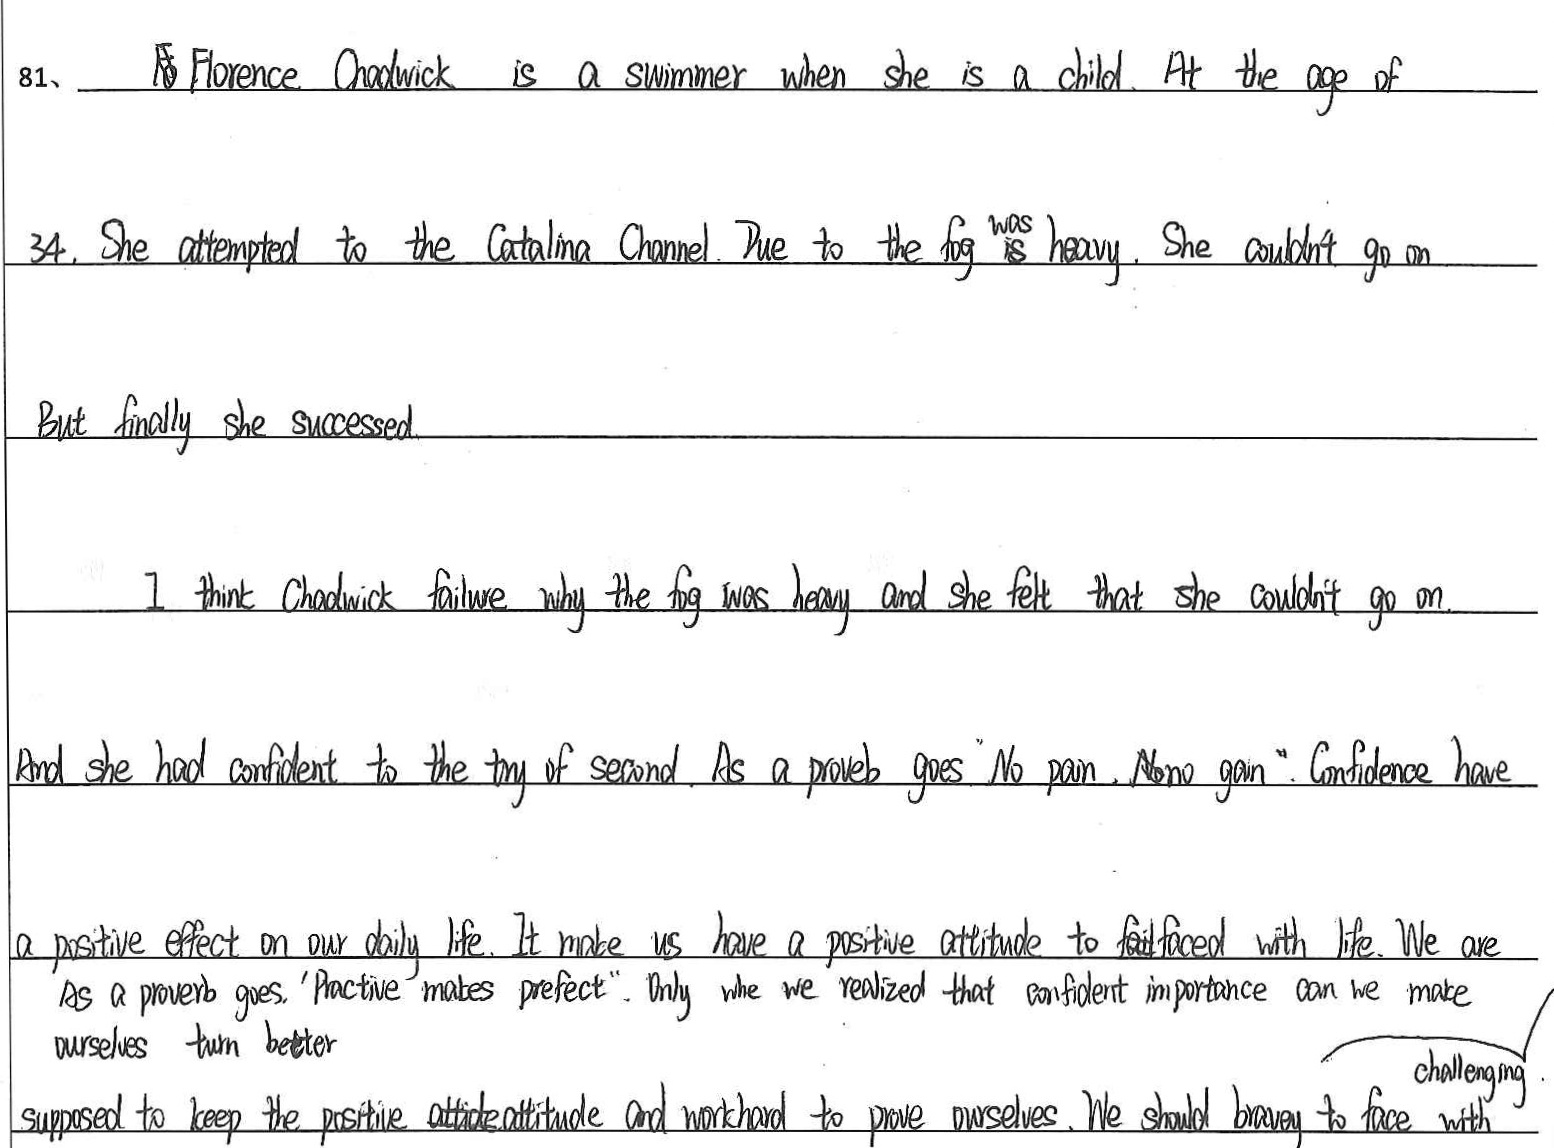 81、 Florence Chadwick is a swimmer when she is a child. At the age of
34. She attempted to the Catalina Channel. Due to the fog was is heavy. She couldn't go on
But finally she successed.
I think Chadwick failure why the fog was heavy and she felt that she couldn't go on.
And she had confident to the try of second. As a proveb goes "No pain. No no gain". Confidence have
a positive effect on our daily life. It make us have a positive attitude to fail faced with life. We are
As a proverb goes. "Practive makes prefect". Only whe we realized that confident importance can we make
ourselves turn better
challenging.
supposed to keep the positive attitude and workhard to prove ourselves. We should bravey to face with